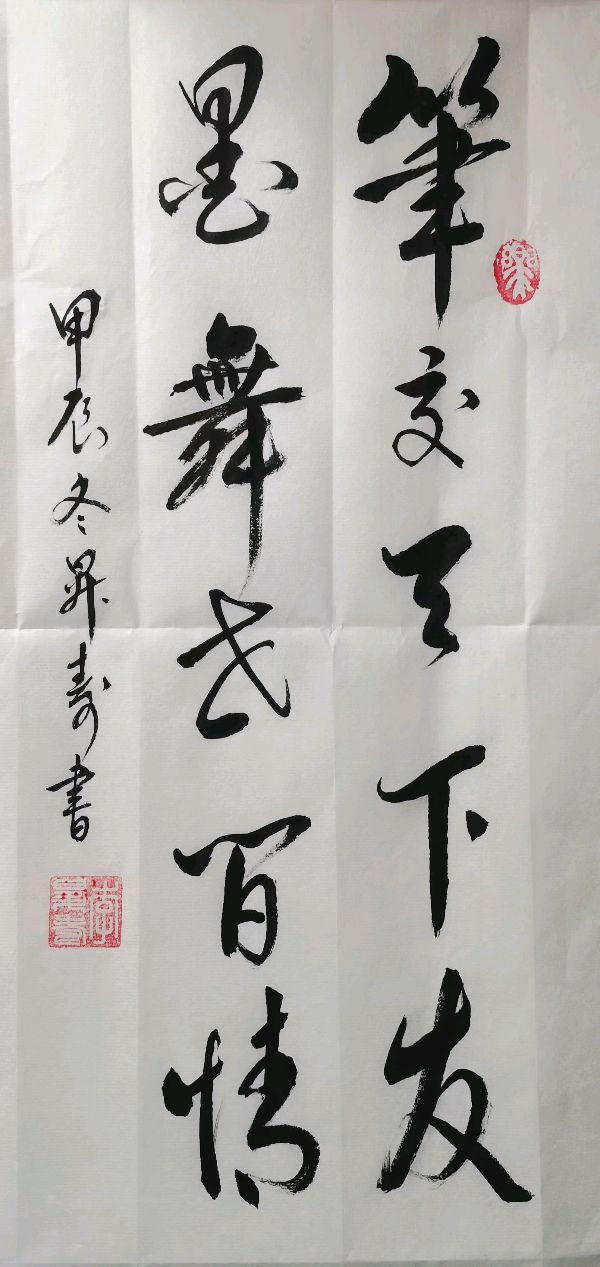 筆交天下友
墨舞世间情
甲辰冬昇寿書